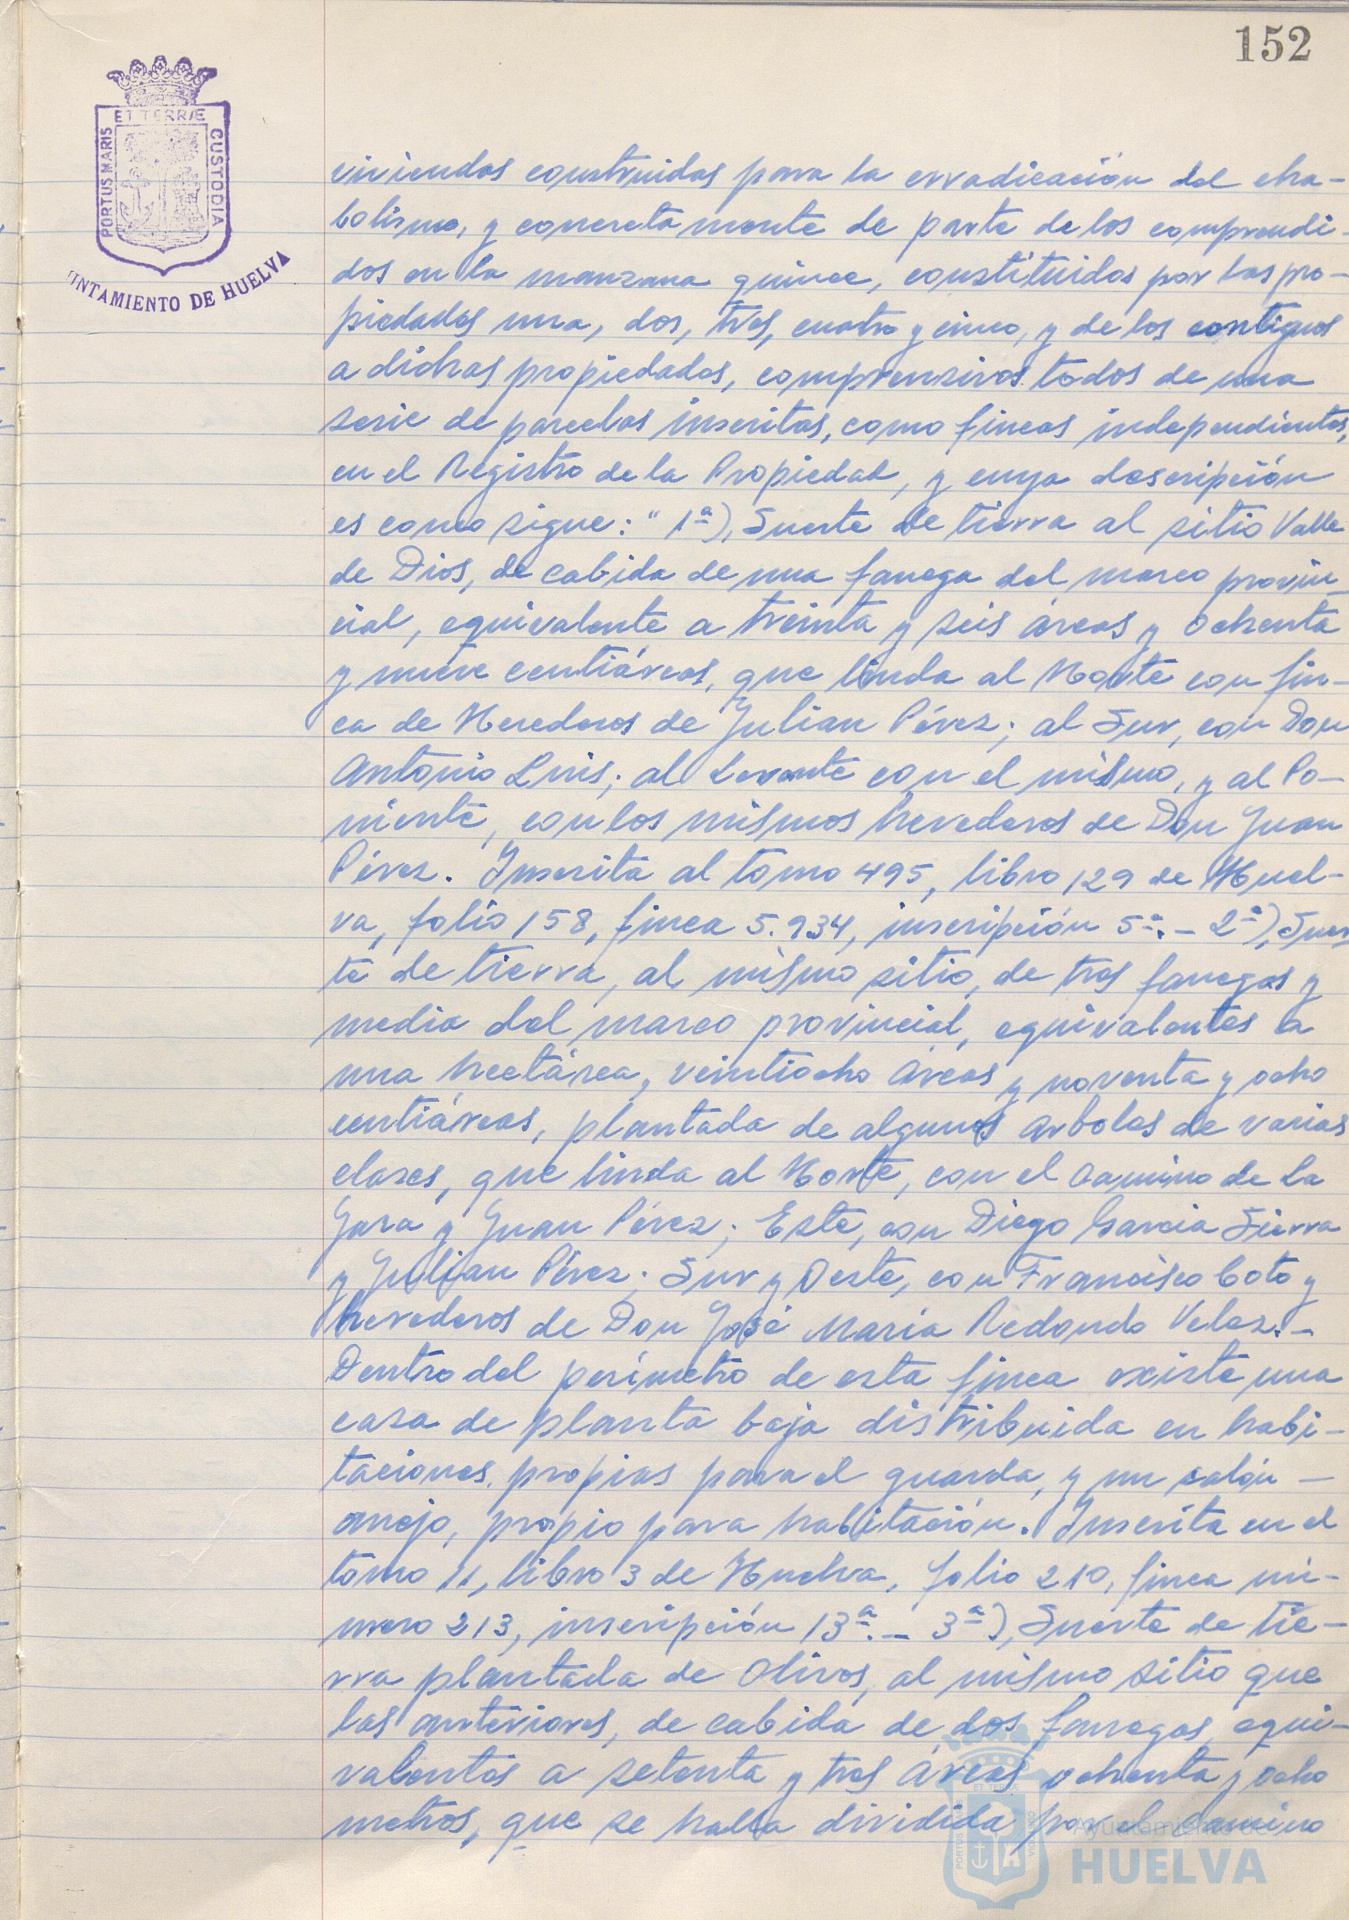 152
ET TERRÆ
PORTUS MARIS
CUSTODIA
UNTAMIENTO DE HUELVA
viviendas construidas para la erradicación del cha-
bolismo, y concretamente de parte de los comprendi-
dos en la manzana quince, constituidos por las pro-
piedades una, dos, tres, cuatro y cinco, y de los contiguos
a dichas propiedades, comprensivos todos de una
serie de parcelas inscritas, como fincas independientes,
en el Registro de la Propiedad, y cuya descripción
es como sigue: " 1ª), Suerte de tierra al sitio Valle
de Dios, de cabida de una fanega del marco provin-
cial, equivalente a treinta y seis áreas y ochenta
y nueve centiáreas, que linda al Norte con fin-
ca de Herederos de Julian Pérez; al Sur, con Don
Antonio Luis; al Levante con el mismo, y al Po-
niente, con los mismos herederos de Don Juan
Pérez. Inscrita al tomo 495, libro 129 de Huel-
va, folio 158, finca 5.934, inscripción 5ª.- 2ª), Suer-
te de tierra, al mismo sitio, de tres fanegas y
media del marco provincial, equivalentes a
una hectárea, veintiocho áreas y noventa y ocho
centiáreas, plantada de algunos arboles de varias
clases, que linda al Norte, con el camino de la
Jara y Juan Pérez; Este, con Diego Garcia Sierra
y Julian Pérez; Sur y Oeste, con Francisco Coto y
herederos de Don José Maria Redondo Velez.-
Dentro del perímetro de esta finca existe una
casa de planta baja distribuida en habi-
taciones propias para el guarda, y un salón
anejo, propio para habitación. Inscrita en el
tomo 11, libro 3 de Huelva, folio 210, finca nú-
mero 213, inscripción 13ª.- 3ª), Suerte de tie-
rra plantada de Olivos, al mismo sitio que
las anteriores, de cabida de dos fanegas, equi-
valentes a setenta y tres áreas ochenta y ocho
metros, que se halla dividida por el camino
Ayuntamiento de
HUELVA